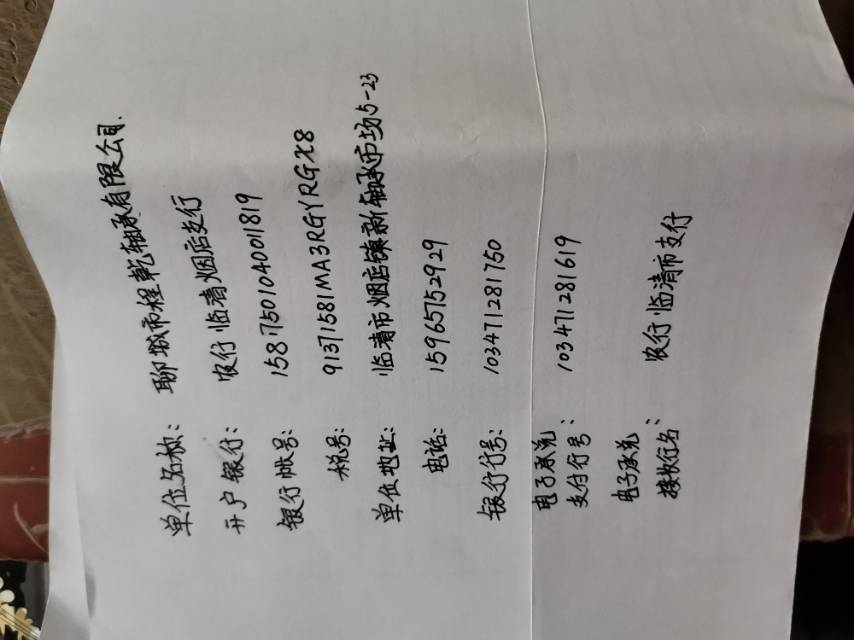 单位名称: 聊城市程乾轴承有限公司.
开户银行: 农行临清烟店支行
银行帐号: 1587501040011819
税号: 91371581MA3RGYRGX8
单位地址: 临清市烟店镇新轴承市场5-23
电话: 15965752929
银行行号: 103471281750
电子承兑
支付行号: 103471281619
电子承兑
接收行名: 农行临清市支行